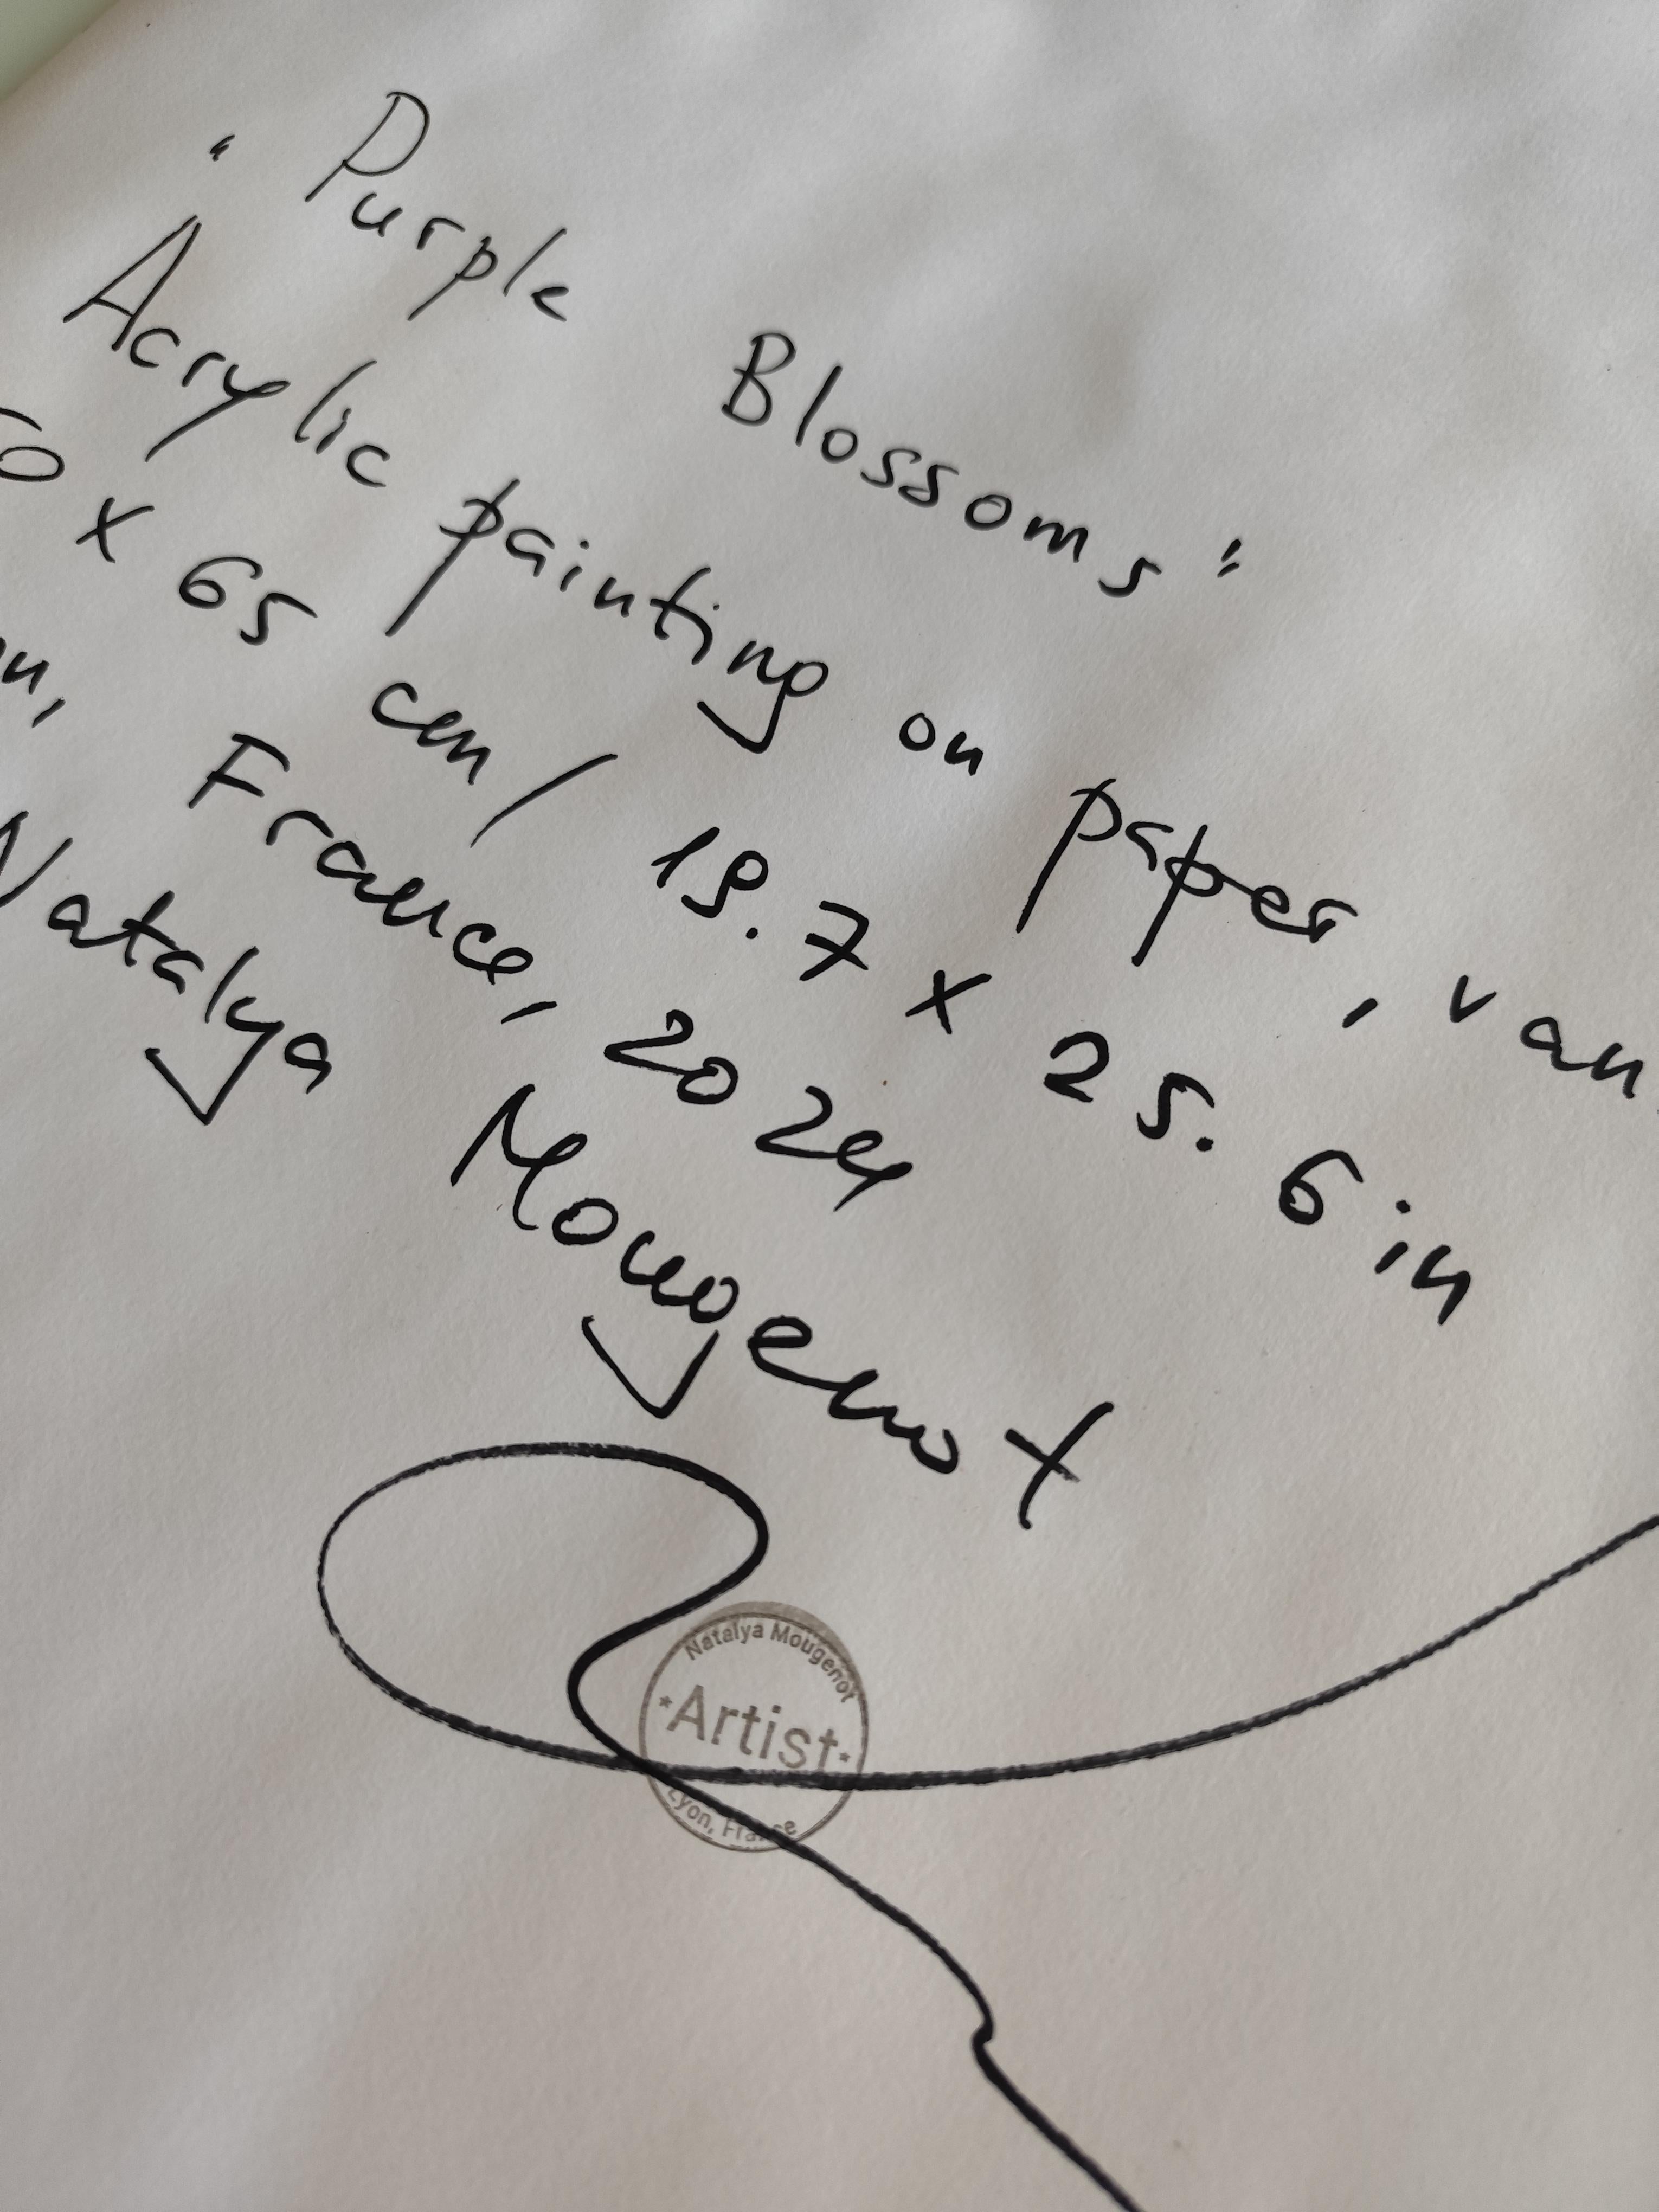 "Purple Blossoms"
Acrylic painting on paper, van
50 x 65 cm / 19.7 x 25.6 in
France, 2024
Natalya Mougenot
Natalya Mougenot
*Artist*
Lyon, France